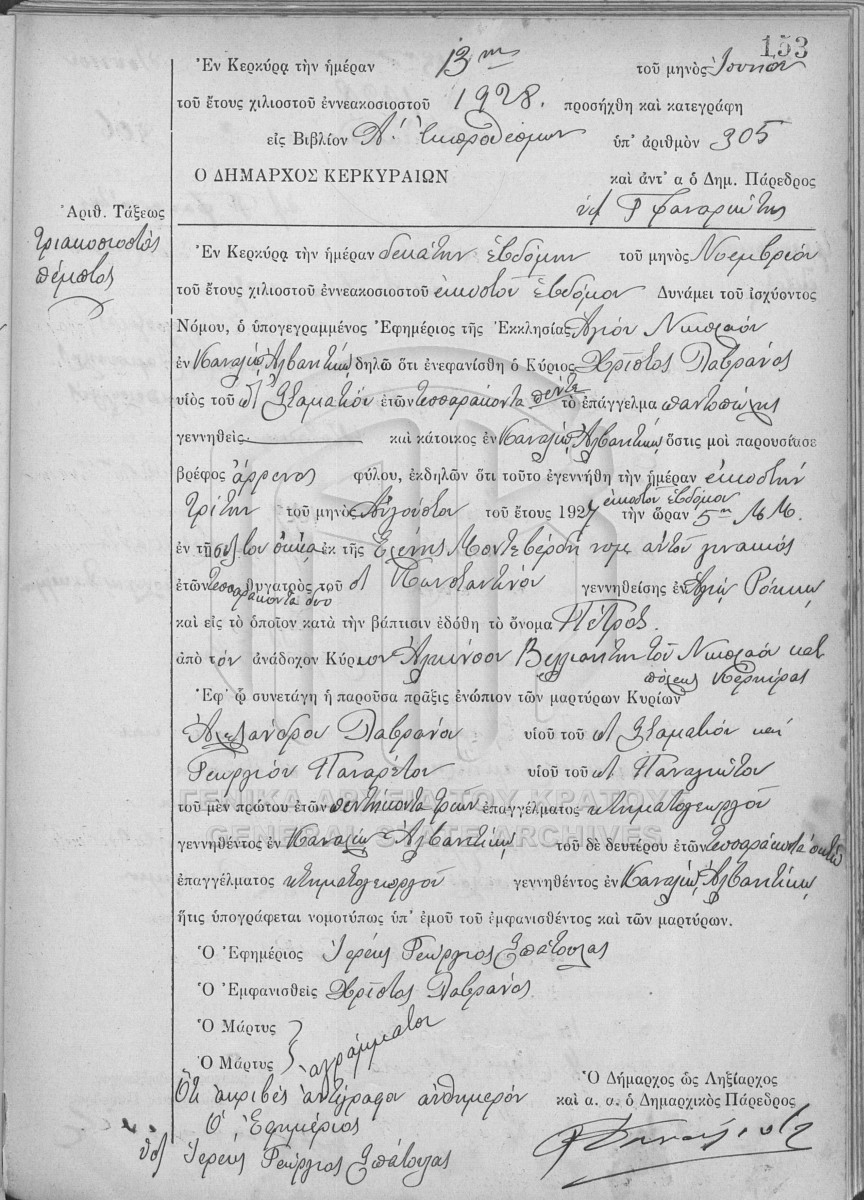 153
Ἐν Κερκύρᾳ τὴν ἡμέραν 13ην τοῦ μηνὸς Ἰουνίου
τοῦ ἔτους χιλιοστοῦ ἐννεακοσιοστοῦ 1928. προσήχθη καὶ κατεγράφη
εἰς Βιβλίον Α. Ἐκπροθέσμων ὑπ' ἀριθμὸν 305
Ο ΔΗΜΑΡΧΟΣ ΚΕΡΚΥΡΑΙΩΝ καὶ ἀντ' α ὁ Δημ. Πάρεδρος
Ἀριθ. Τάξεως
τριακοσιοστός
πέμπτος
Ἐν Κερκύρᾳ τὴν ἡμέραν δεκάτην ἑβδόμην τοῦ μηνὸς Νοεμβρίου
τοῦ ἔτους χιλιοστοῦ ἐννεακοσιοστοῦ εἰκοστοῦ ἑβδόμου Δυνάμει τοῦ ἰσχύοντος
Νόμου, ὁ ὑπογεγραμμένος Ἐφημέριος τῆς Ἐκκλησίας Ἁγίου Νικολάου
ἐν Καναλίῳ Ἀλβανικῷ δηλῶ ὅτι ἐνεφανίσθη ὁ Κύριος Χρίστος Λαβράνος
υἱὸς τοῦ Σταματίου ἐτῶν τεσσαράκοντα πέντε τὸ ἐπάγγελμα παντοπώλης
γεννηθεὶς καὶ κάτοικος ἐν Καναλίῳ Ἀλβανικῷ ὅστις μοι παρουσίασε
βρέφος ἄρρενος φύλου, ἐκδηλῶν ὅτι τοῦτο ἐγεννήθη τὴν ἡμέραν εἰκοστὴν
τρίτην τοῦ μηνὸς Αὐγούστου τοῦ ἔτους 1927 εἰκοστοῦ ἑβδόμου τὴν ὥραν 5ην Μ.Μ.
ἐν τῇ οἰκίᾳ ἐκ τῆς Εἰρήνης Μοντεβέρδη νομ. αὐτοῦ γυναικός
ἐτῶν τεσσαράκοντα δύο θυγατρὸς τοῦ Κωνσταντίνου γεννηθείσης ἐν Ἁγίῳ Ρόκκῳ
καὶ εἰς τὸ ὁποῖον κατὰ τὴν βάπτισιν ἐδόθη τὸ ὄνομα Πέτρος.
ἀπὸ τὸν ἀνάδοχον Κύριον Ἀλκίνοον Βελλιανίτην τοῦ Νικολάου κατ
πόλεως Κερκύρας
Ἐφ' ᾧ συνετάγη ἡ παροῦσα πρᾶξις ἐνώπιον τῶν μαρτύρων Κυρίων
Ἀλεξάνδρου Λαβράνου υἱοῦ τοῦ Σταματίου καί
Γεωργίου Παναρέτου υἱοῦ τοῦ Παναγιώτου
τοῦ μὲν πρώτου ἐτῶν πεντήκοντα τριῶν ἐπαγγέλματος κτηματογεωργοῦ
γεννηθέντος ἐν Καναλίῳ Ἀλβανικῷ τοῦ δὲ δευτέρου ἐτῶν τεσσαράκοντα ὀκτώ
ἐπαγγέλματος κτηματογεωργοῦ γεννηθέντος ἐν Καναλίῳ Ἀλβανικῷ
ἥτις ὑπογράφεται νομοτύπως ὑπ' ἐμοῦ τοῦ ἐμφανισθέντος καὶ τῶν μαρτύρων.
Ὁ Ἐφημέριος Ἱερεὺς Γεώργιος Σπάτουλας
Ὁ Ἐμφανισθεὶς Χρίστος Λαβράνος
Ὁ Μάρτυς
Ὁ Μάρτυς ἀγράμματοι
Ὅτι ἀκριβὲς ἀντίγραφον αὐθημερόν
Ὁ Ἐφημέριος
Ἱερεὺς Γεώργιος Σπάτουλας
Ὁ Δήμαρχος ὡς Ληξίαρχος
καὶ α. α. ὁ Δημαρχικὸς Πάρεδρος
ΓΕΝΙΚΑ ΑΡΧΕΙΑ ΤΟΥ ΚΡΑΤΟΥΣ
GENERAL STATE ARCHIVES